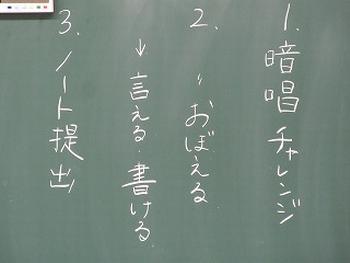 1. 暗唱チャレンジ
2. 〃 おぼえる
↓ 言える・書ける
3. ノート提出